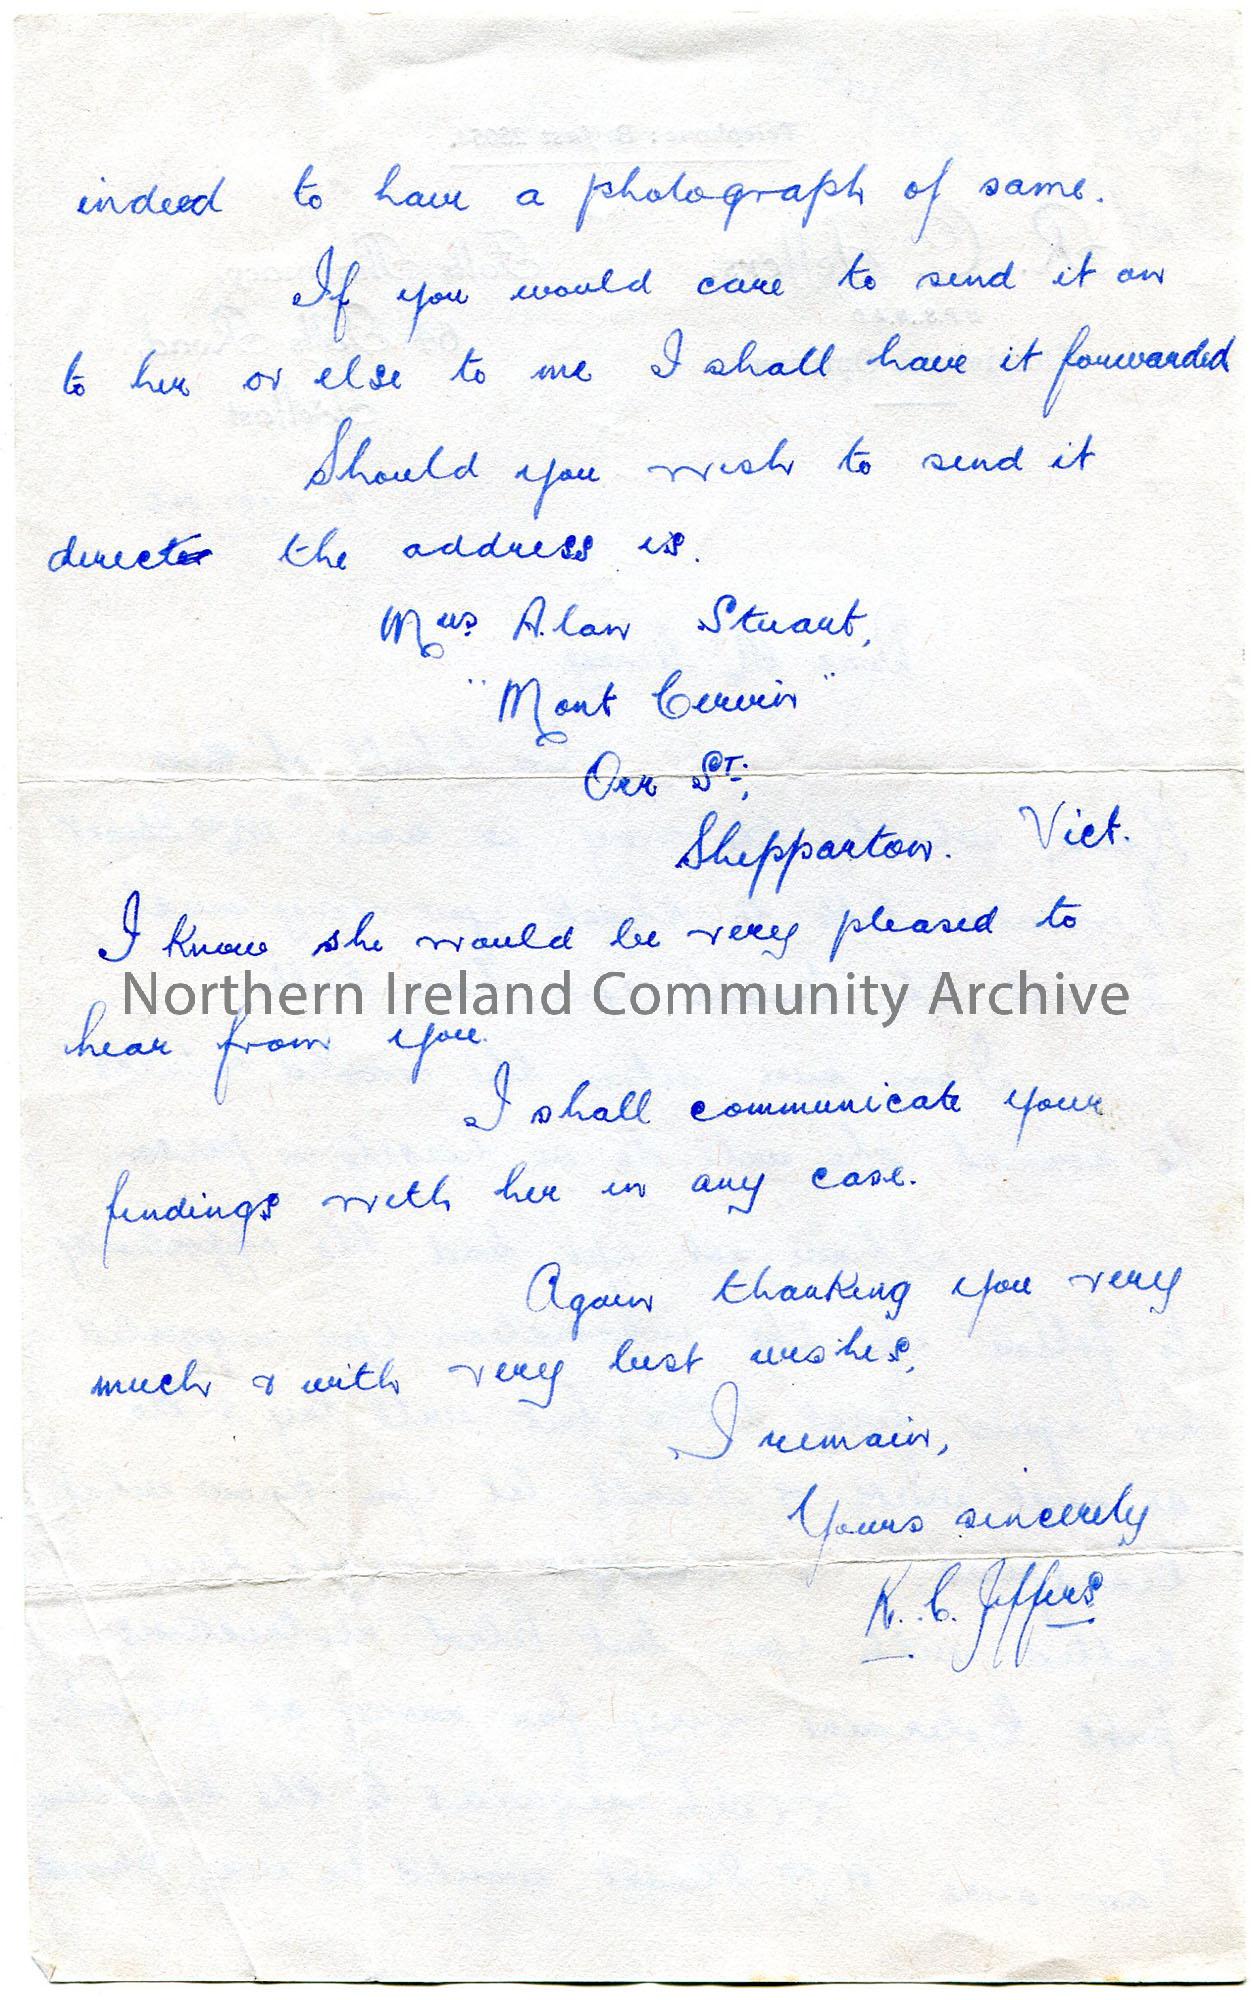 indeed to have a photograph of same.
If you would care to send it on
to her or else to me I shall have it forwarded
Should you wish to send it
direct the address is.
Mrs Alan Stuart,
"Mont Cervin"
Orr St.,
Shepparton. Vict.
I know she would be very pleased to
Northern Ireland Community Archive
hear from you.
I shall communicate your
findings with her in any case.
Again thanking you very
much & with very best wishes,
I remain,
Yours sincerely
K. C. Jeffers